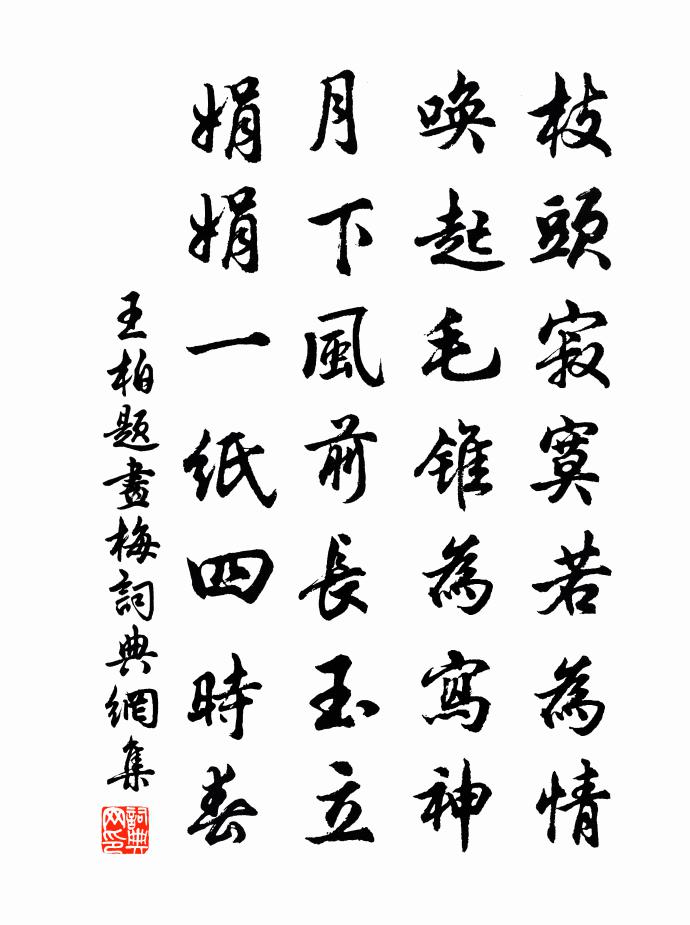 枝頭寂寞若為情
喚起毛錐為寫神
月下風前長玉立
娟娟一紙四時春
王柏題畫梅詞典網集
詞典网印